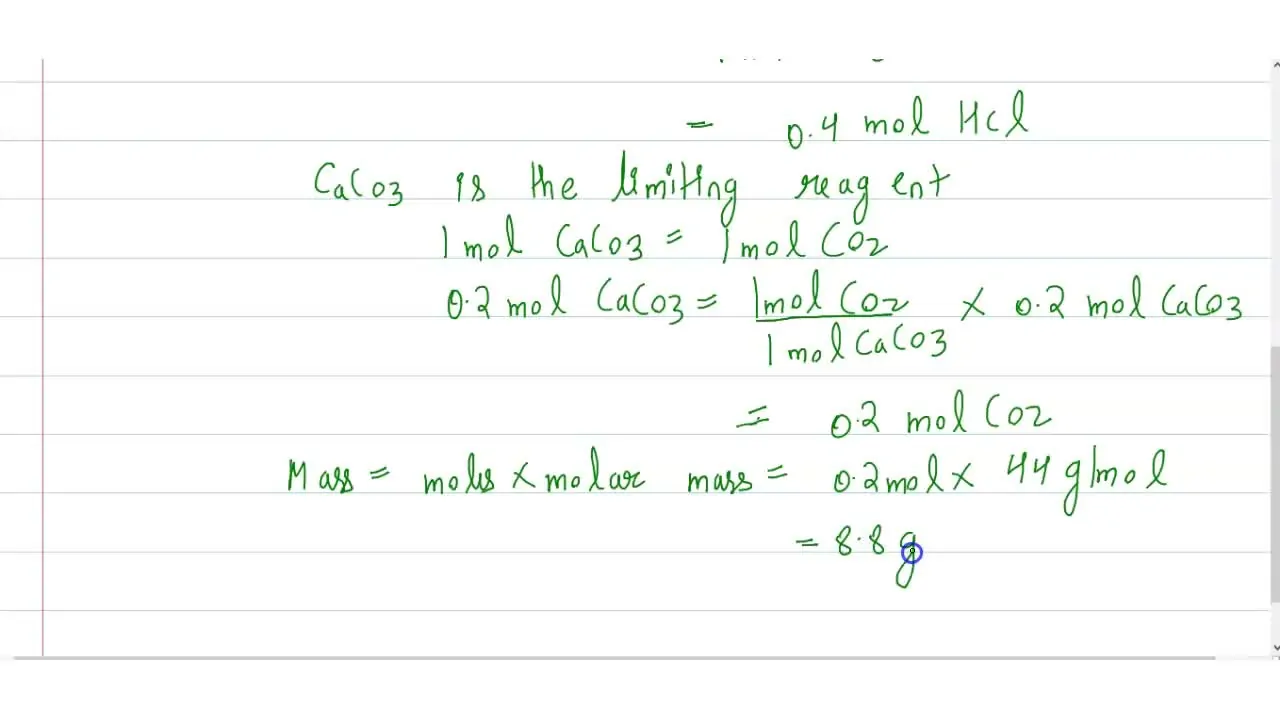 = 0.4 mol HCl
CaCO3 is the limiting reagent
1 mol CaCO3 = 1 mol CO2
0.2 mol CaCO3 = 1mol CO2 × 0.2 mol CaCO3
1 mol CaCO3
= 0.2 mol CO2
Mass = moles × molar mass = 0.2 mol × 44 g/mol
= 8.8 g